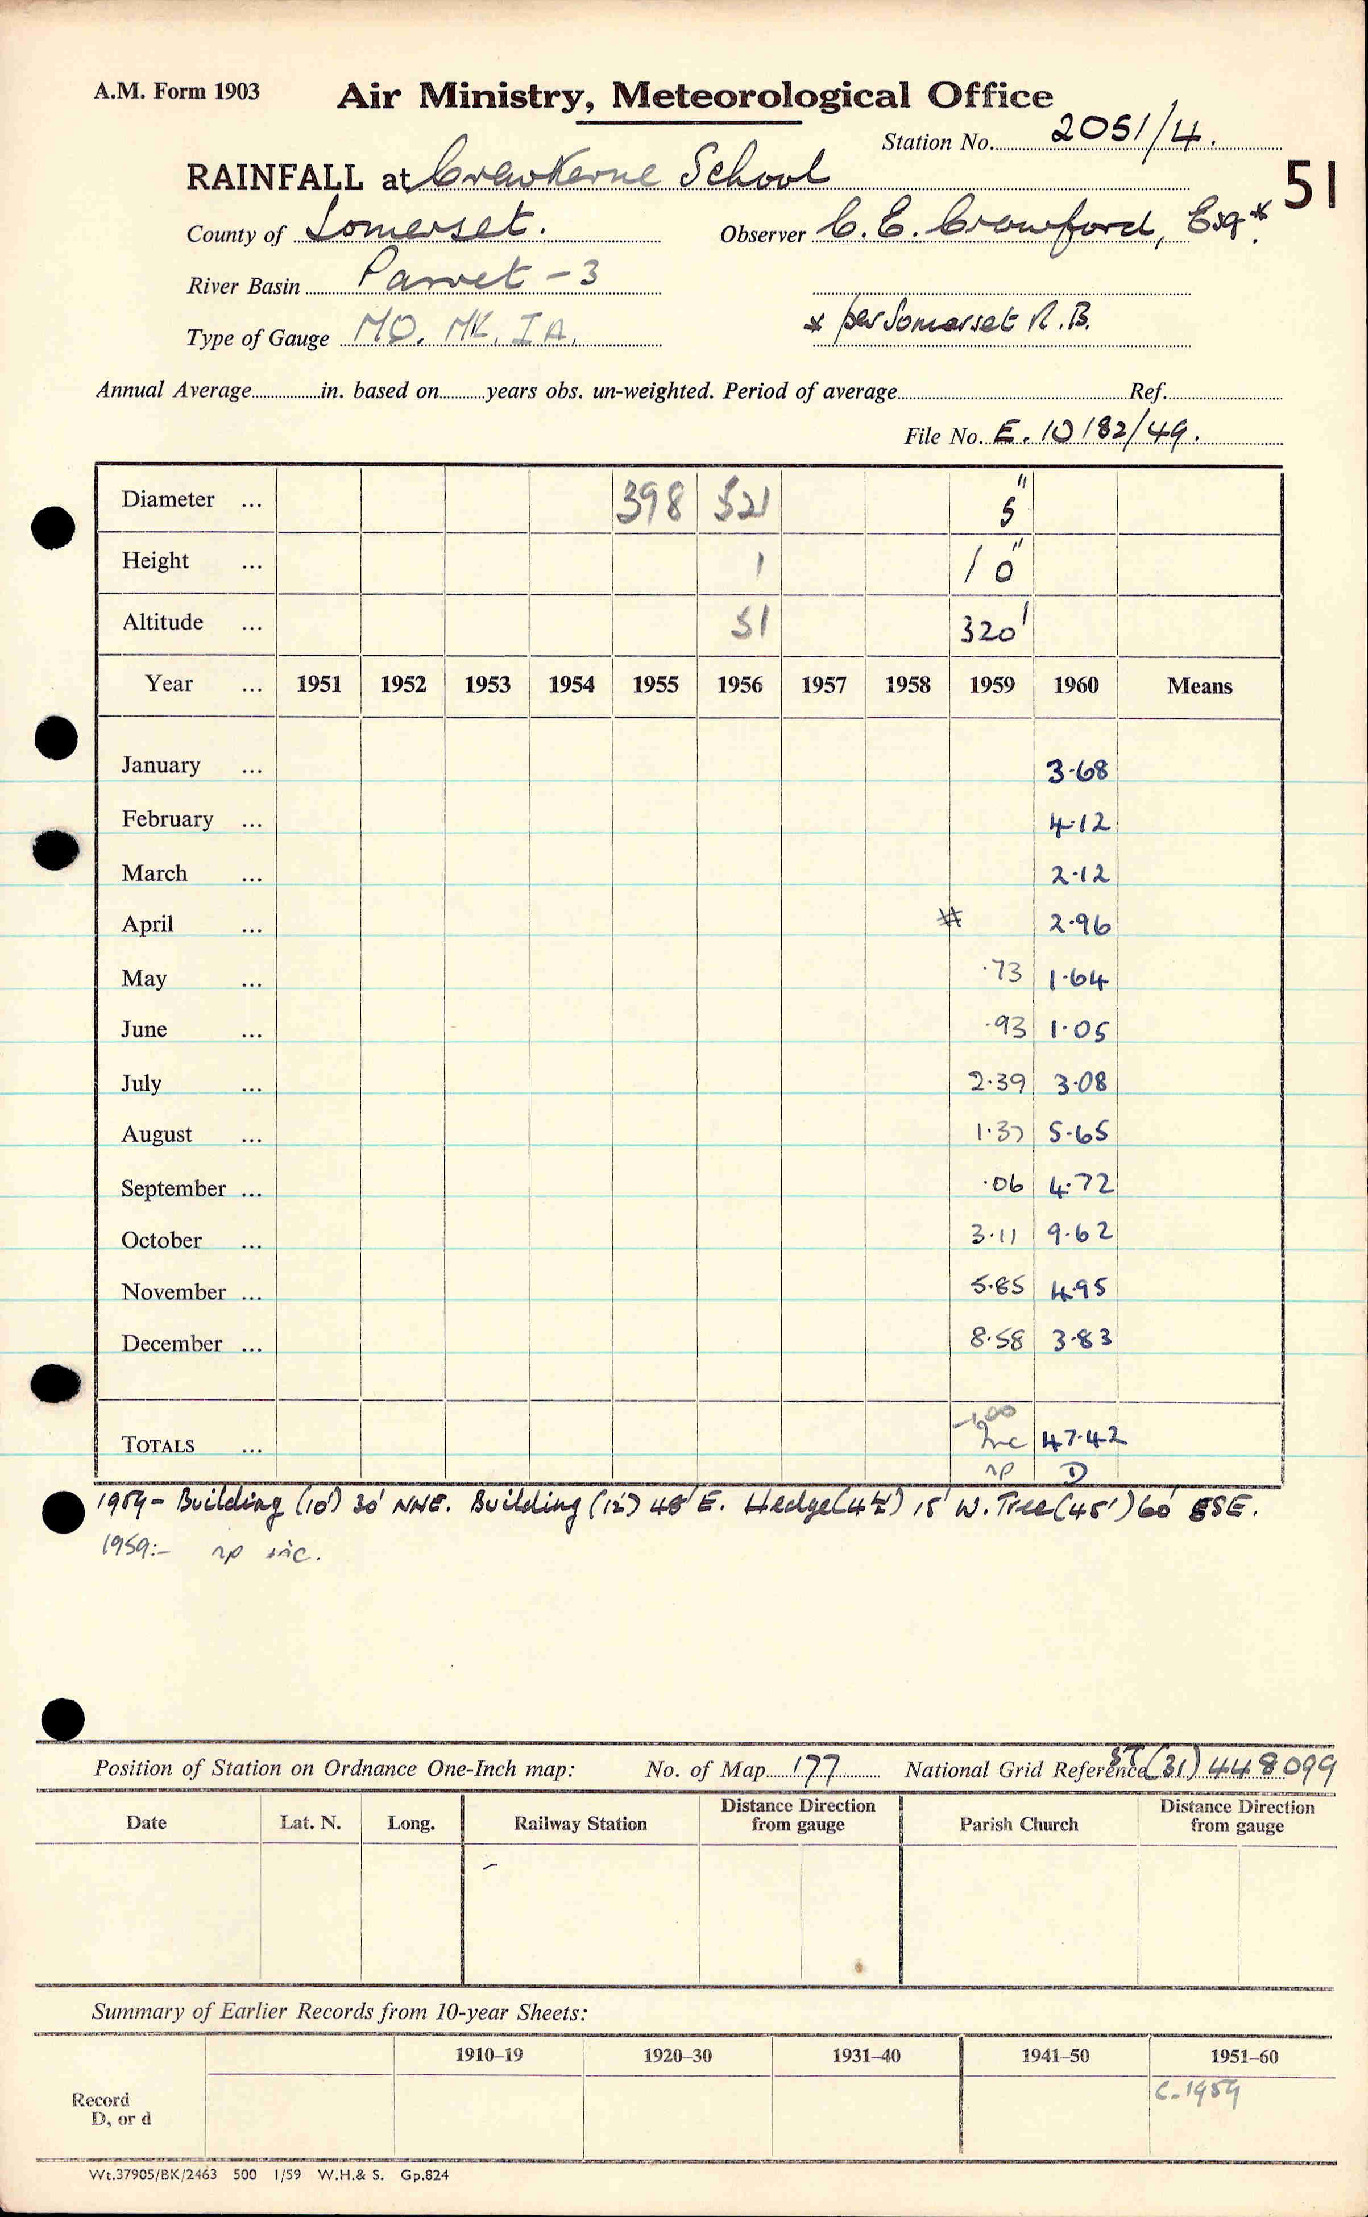 A.M. Form 1903 Air Ministry, Meteorological Office
Station No. 2051/4.
RAINFALL at Crewkerne School 51
County of Somerset. Observer C.E. Crawford, Esq*.
River Basin Parret - 3
Type of Gauge MO. MK. IA. * per Somerset R.B.
Annual Average in. based on years obs. un-weighted. Period of average Ref.
File No. E. 10182/49.
Diameter ... 398 521 5"
Height ... 1 10"
Altitude ... 51 320'
Year ... 1951 1952 1953 1954 1955 1956 1957 1958 1959 1960 Means
January ... 3·68
February ... 4·12
March ... 2·12
April ... # 2·96
May ... ·73 1·64
June ... ·93 1·05
July ... 2·39 3·08
August ... 1·37 5·65
September ... ·06 4·72
October ... 3·11 9·62
November ... 5·85 4·95
December ... 8·58 3·83
TOTALS ... Inc 47·42
np D
1959 - Building (10') 30' NNE. Building (12') 48' E. Hedge (4½') 15' W. Tree (45') 60' ESE.
1959:- np inc.
Position of Station on Ordnance One-Inch map: No. of Map 177 National Grid Reference ST (31) 448099
Date Lat. N. Long. Railway Station Distance Direction from gauge Parish Church Distance Direction from gauge
Summary of Earlier Records from 10-year Sheets:
1910–19 1920–30 1931–40 1941–50 1951–60
Record D, or d C-1959
Wt.37905/BK/2463 500 1/59 W.H.& S. Gp.824